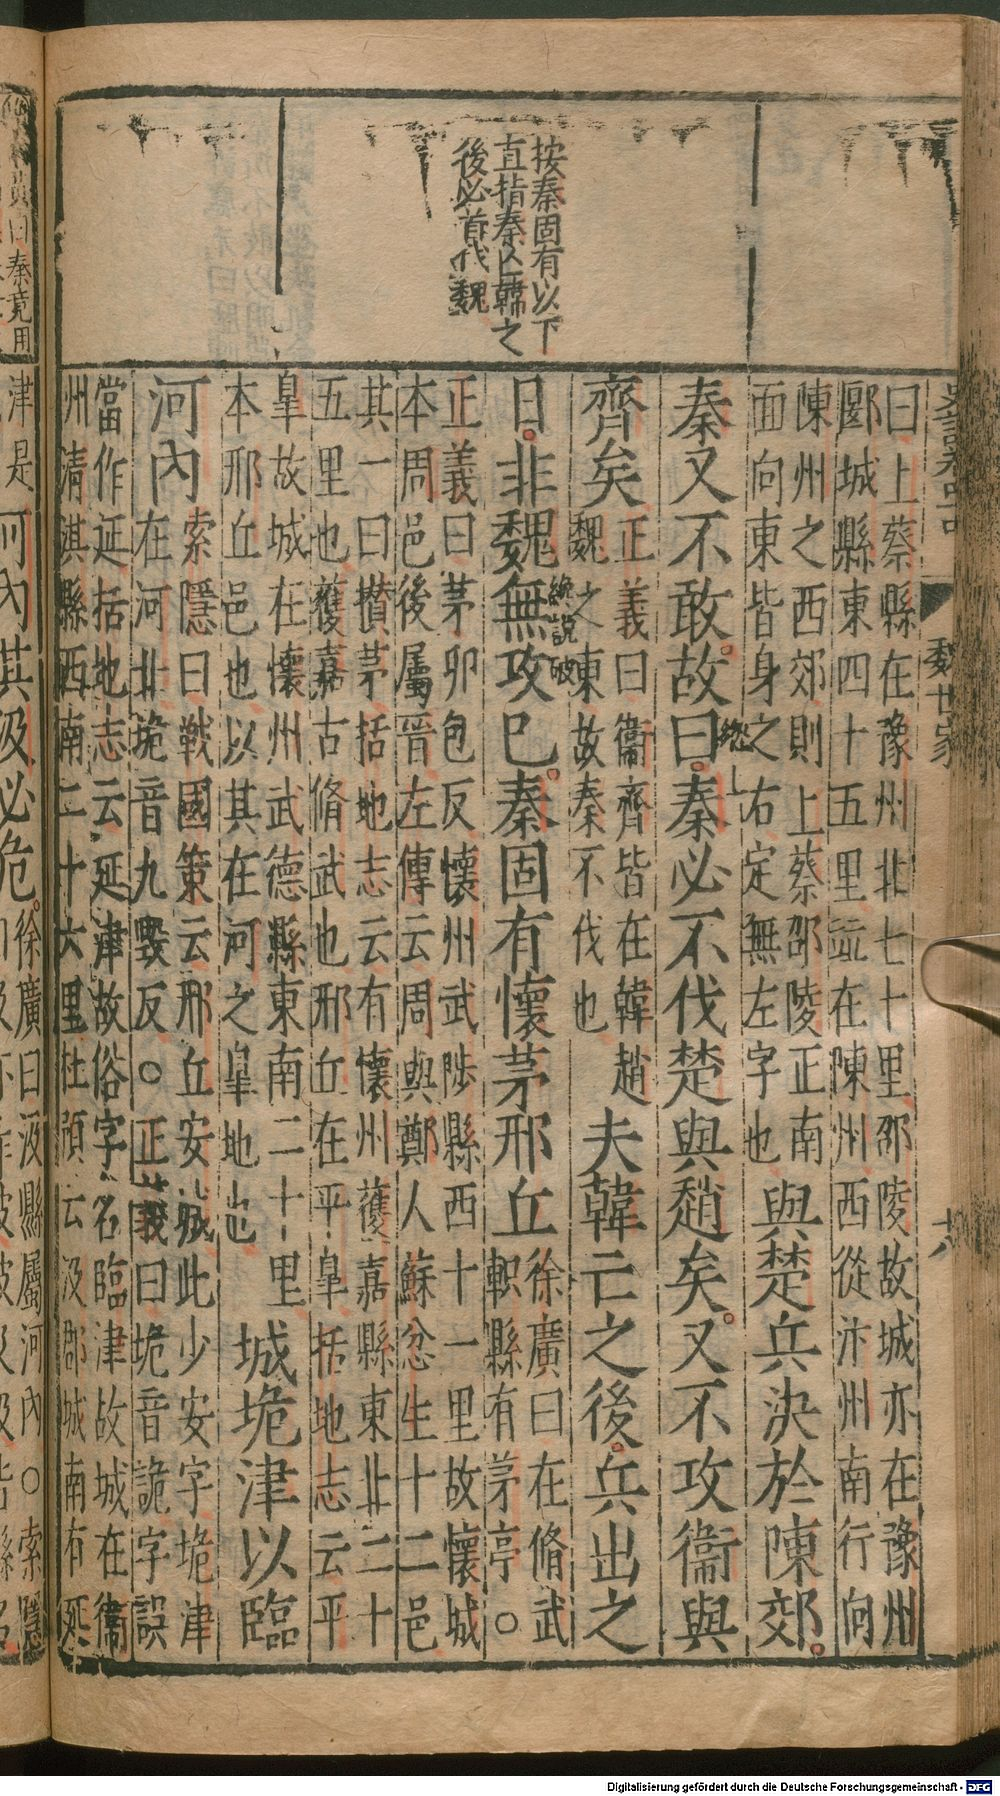 史記卷四十四　魏世家　十八
按秦固有以下
直指秦亡韓之
後必首伐魏
曰上蔡縣在豫州北七十里邵陵故城亦在豫州
郾城縣東四十五里並在陳州西從汴州南行向
陳州之西郊則上蔡邵陵正南
面向東皆身之右定無左字也
與楚兵決於陳郊
秦又不敢故曰秦必不伐楚與趙矣又不攻衞與
總上
齊矣
正義曰衞齊皆在韓趙
魏之東故秦不伐也
夫韓亡之後兵出之
日非魏無攻巳秦固有懷茅邢丘
總說破
徐廣曰在脩武
軹縣有茅亭○
正義曰茅卯包反懷州武陟縣西十一里故懷城
本周邑後屬晉左傳云周與鄭人蘇忿生十二邑
其一曰攢茅括地志云有懷州獲嘉縣東北二十
五里也獲嘉古脩武也邢丘在平皋括地志云平
皋故城在懷州武德縣東南二十里
本邢丘邑也以其在河之皋地也
城垝津以臨
河內
索隱曰戰國策云邢丘安城此少安字垝津
在河北垝音九毀反○正義曰垝音詭字誤
當作延括地志云延津故俗字名臨津故城在衞
州清淇縣西南二十六里杜預云汲郡城南有延
秦竟用
津是
河內其汲必危
徐廣曰汲縣屬河內○索隱
Digitalisierung gefördert durch die Deutsche Forschungsgemeinschaft - DFG